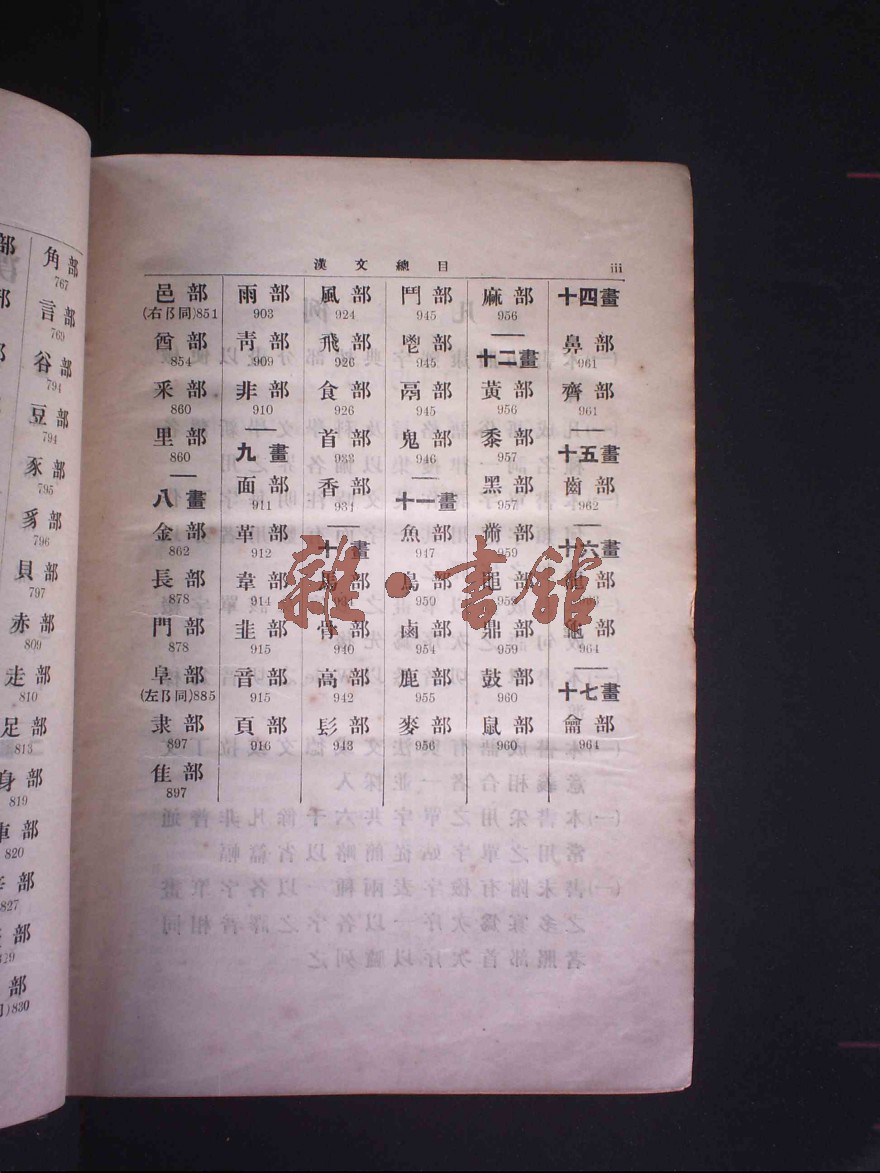 角部
767
言部
769
谷部
794
豆部
794
豕部
795
豸部
796
貝部
797
赤部
809
走部
810
足部
813
身部
819
車部
820
部
827
部
829
部
830
漢文總目
iii
邑部
(右阝同)851
酉部
854
釆部
860
里部
860
八畫
金部
862
長部
878
門部
878
阜部
(左阝同)885
隶部
897
隹部
897
雨部
903
靑部
909
非部
910
九畫
面部
911
革部
912
韋部
914
韭部
915
音部
915
頁部
916
風部
924
飛部
926
食部
926
首部
933
香部
934
十畫
馬部
骨部
940
高部
942
髟部
943
鬥部
945
鬯部
945
鬲部
945
鬼部
946
十一畫
魚部
947
鳥部
950
鹵部
954
鹿部
955
麥部
956
麻部
956
十二畫
黃部
956
黍部
957
黑部
957
黹部
959
黽部
鼎部
959
鼓部
960
鼠部
960
十四畫
鼻部
961
齊部
961
十五畫
齒部
962
十六畫
部
龜部
964
十七畫
龠部
964
雜·書館